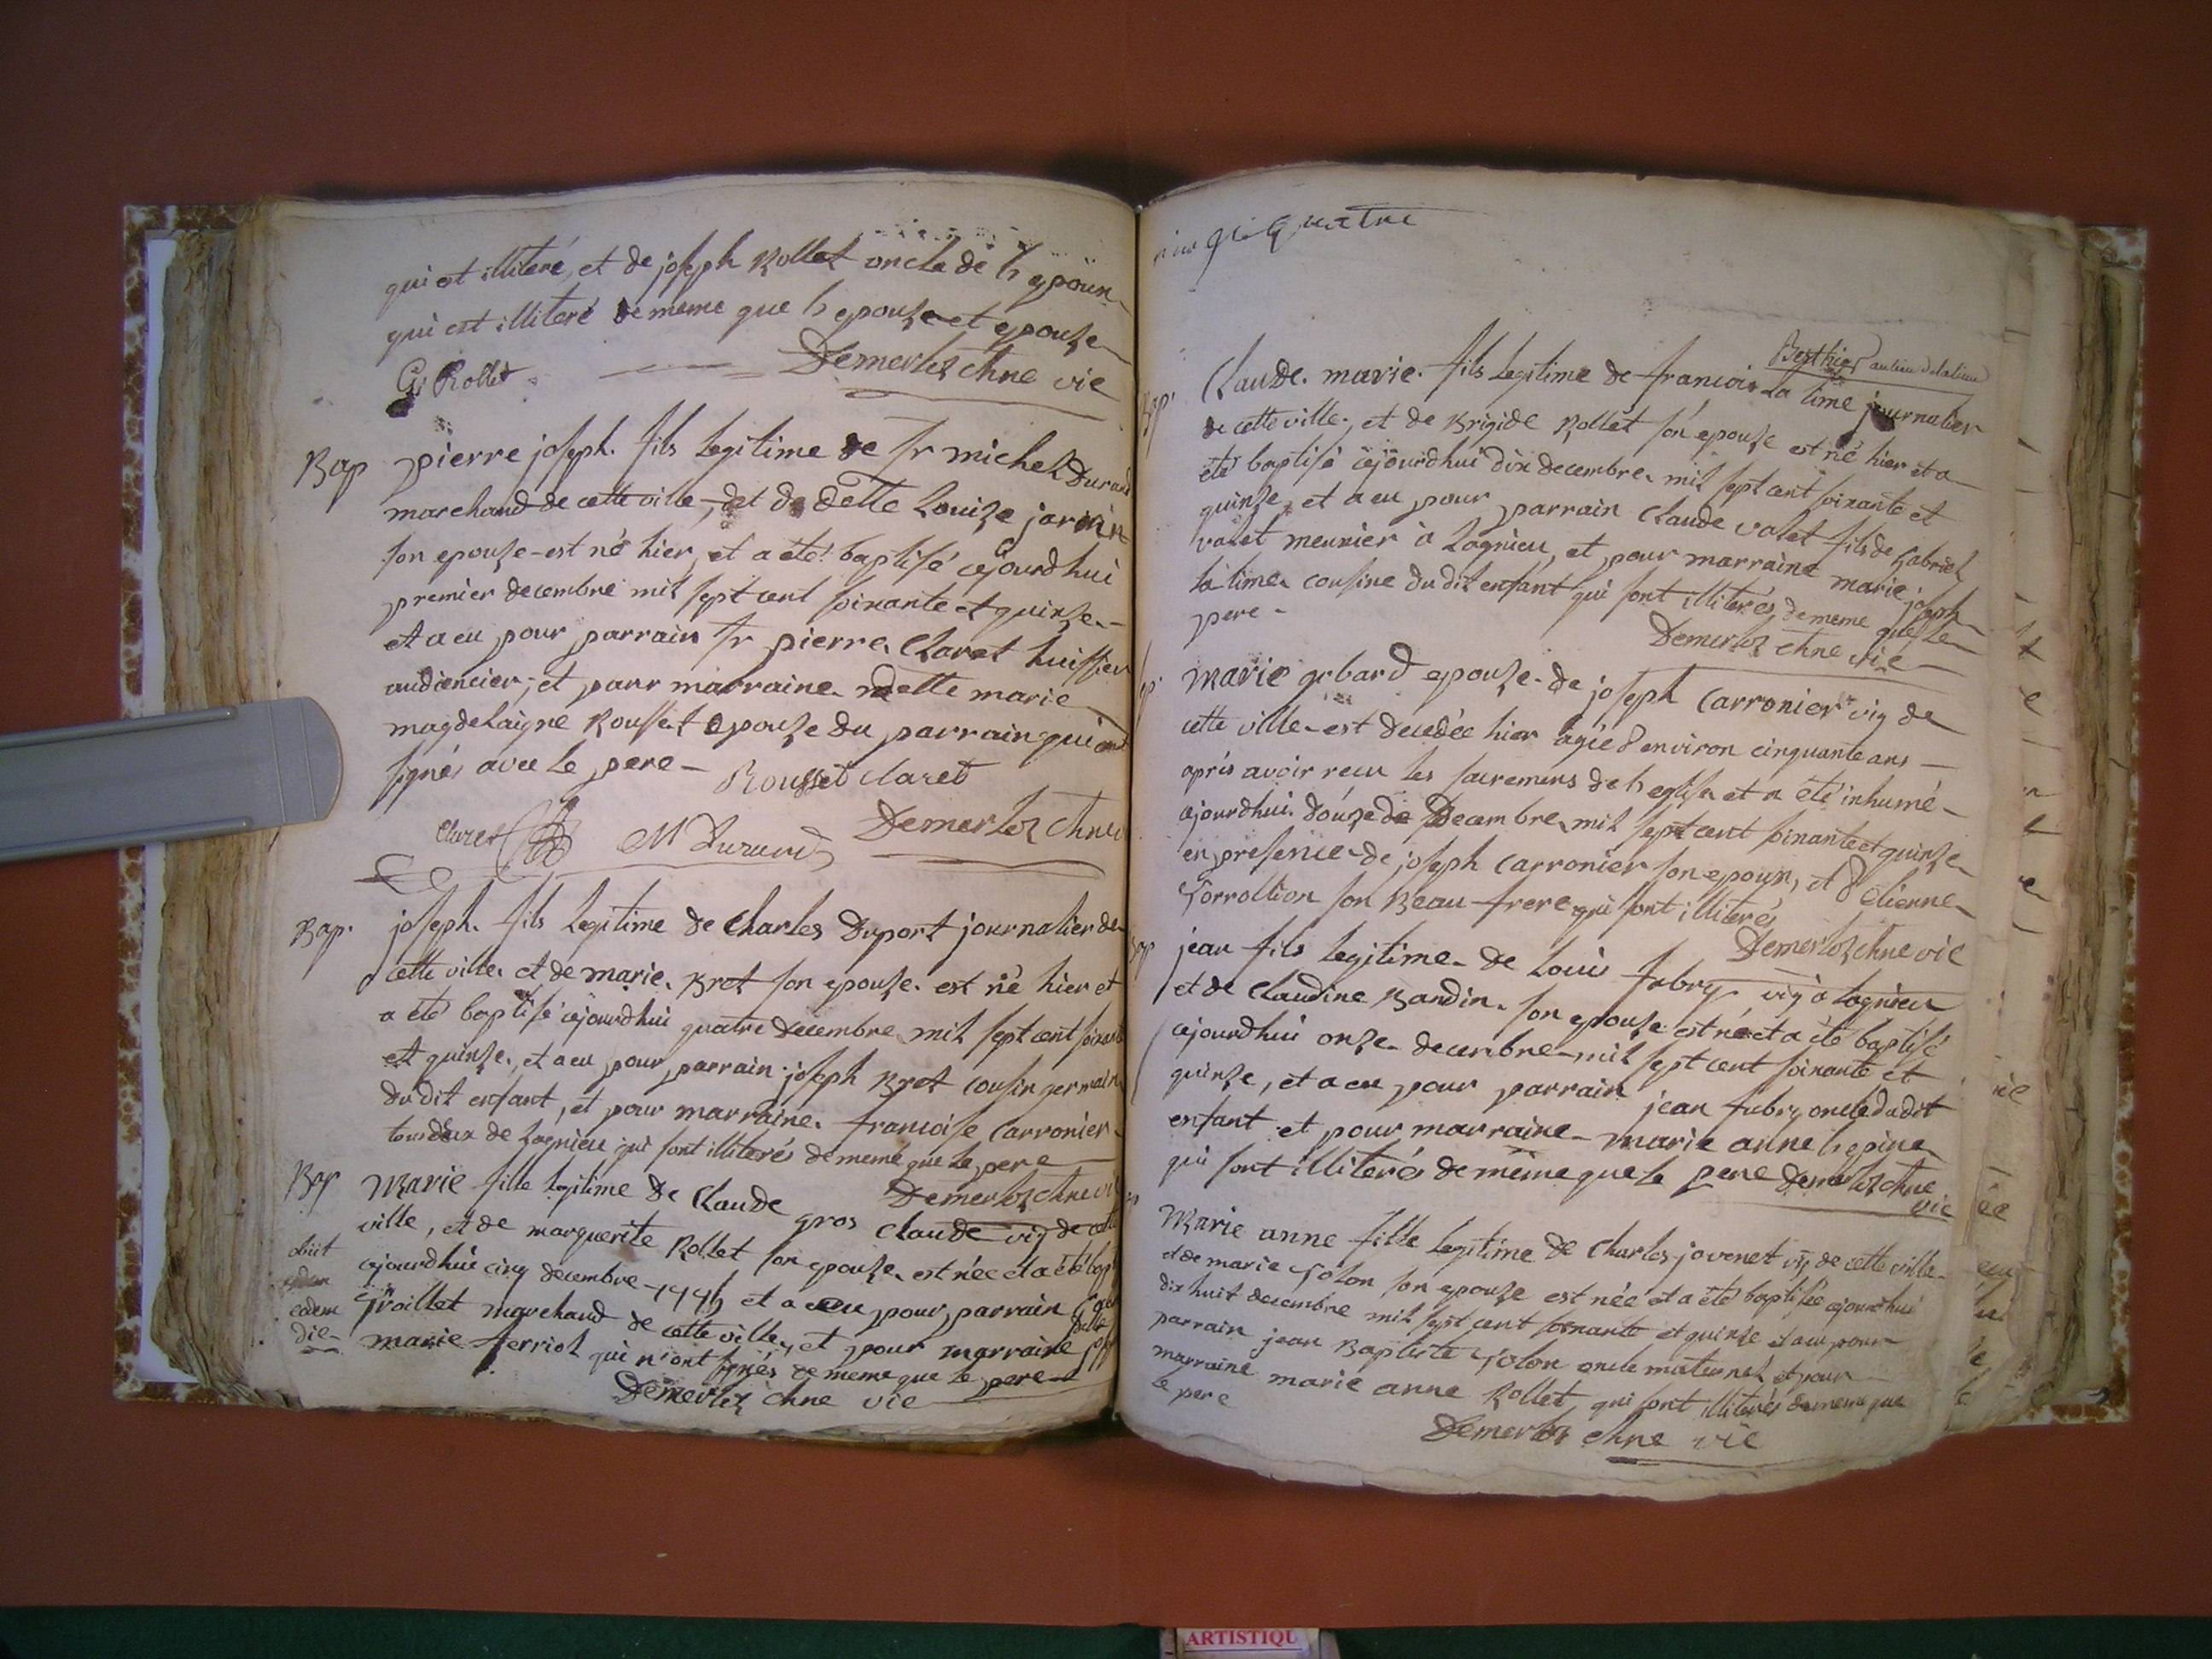 qui est illiteré, et de joseph Rollet oncle de l'epoux
qui est illiteré de meme que l'epouze et epouze
G. Rollet Demerloz chne vic
Bap pierre joseph. fils legitime de sr michel Durand
marchand de cette ville, et de delle Louize jarnin
son epouze est né hier, et a été baptisé cejourdhui
premier decembre mil sept cent soixante et quinze
et a eu pour parrain sr pierre Claret huissier
audiencier, et pour marraine delle marie
magdelaigne Rousset epouze du parrain qui ont
signés avec le pere
Rousset Claret
Claret M Durand Demerloz chne
Bap. joseph. fils legitime de Charles Duport journalier de
cette ville et de marie Bret son epouze est né hier et
a été baptisé cejourdhui quatre decembre mil sept cent soixante
et quinze, et a eu pour parrain joseph Bret cousin germain
du dit enfant, et pour marraine francoise Carronier
tous deux de Lagnieu qui sont illiterés de meme que le pere
Demerloz chne vic
Bap Marie fille legitime de Claude gros Claude vig de cette
ville, et de marguerite Rollet son epouze est née et a été bap
obiit
cejourdhui cinq decembre 1775 et a eu pour parrain
eadem
Groillet marchand de cette ville, et pour marraine
die
marie ferriol qui n'ont signés de meme que le pere
Demerloz chne vic
quatre
Berthier au lieu de latime
Claude. marie. fils legitime de francois La time journalier
Bap.
de cette ville, et de Brigide Rollet son epouze est né hier et a
été baptisé cejourdhui dix decembre mil sept cent soixante et
quinze, et a eu pour parrain Claude valet fils de Gabriel
valet meunier à Lagnieu, et pour marraine marie joseph
la time cousine du dit enfant qui sont illiterés de meme que le
pere
Demerloz chne vic
Marie gobard epouze de joseph Carronier vig de
cette ville est decedée hier agée d'environ cinquante ans
aprés avoir recu les sacremens de l'eglise et a été inhumé
cejourdhui douze de Decembre mil sept cent soixante et quinze
en presence de joseph Carronier son epoux, et d'etienne
Sorrollion son Beau frere qui sont illiterés
Demerloz chne vic
Bap jean fils legitime de Louis fabry vig à lagnieu
et de Claudine Bandin son epouze est né et a été baptisé
cejourdhui onze decembre mil sept cent soixante et
quinze, et a eu pour parrain jean fabry oncle du dit
enfant et pour marraine marie anne l'epine
qui sont illiterés de même que le pere Demerloz chne
vic
Marie anne fille legitime de Charles jovenet vig de cette ville
et de marie Solon son epouze est née et a été baptisée cejourdhui
dix huit decembre mil sept cent soixante et quinze et a eu pour
parrain jean Baptiste Solon oncle maternel et pour
marraine marie anne Rollet qui sont illiterés de meme que
le pere
Demerloz chne vic
ARTISTIQU